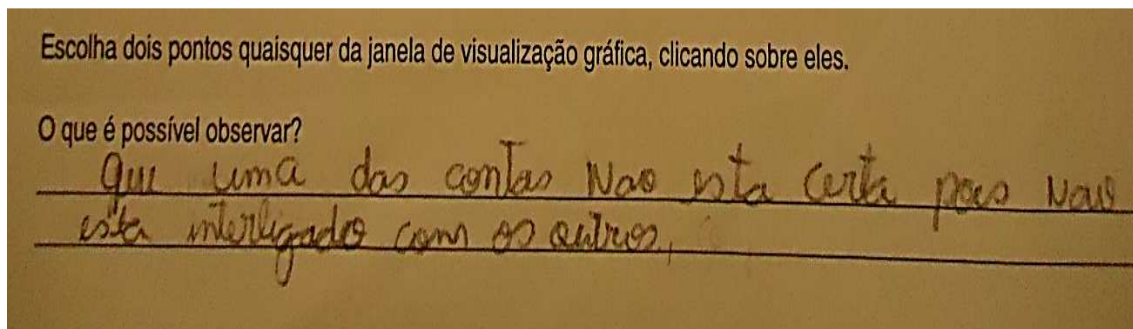 Escolha dois pontos quaisquer da janela de visualização gráfica, clicando sobre eles.
O que é possível observar?
que uma das contas Nao esta certa pois Nao
esta interligado com os outros,